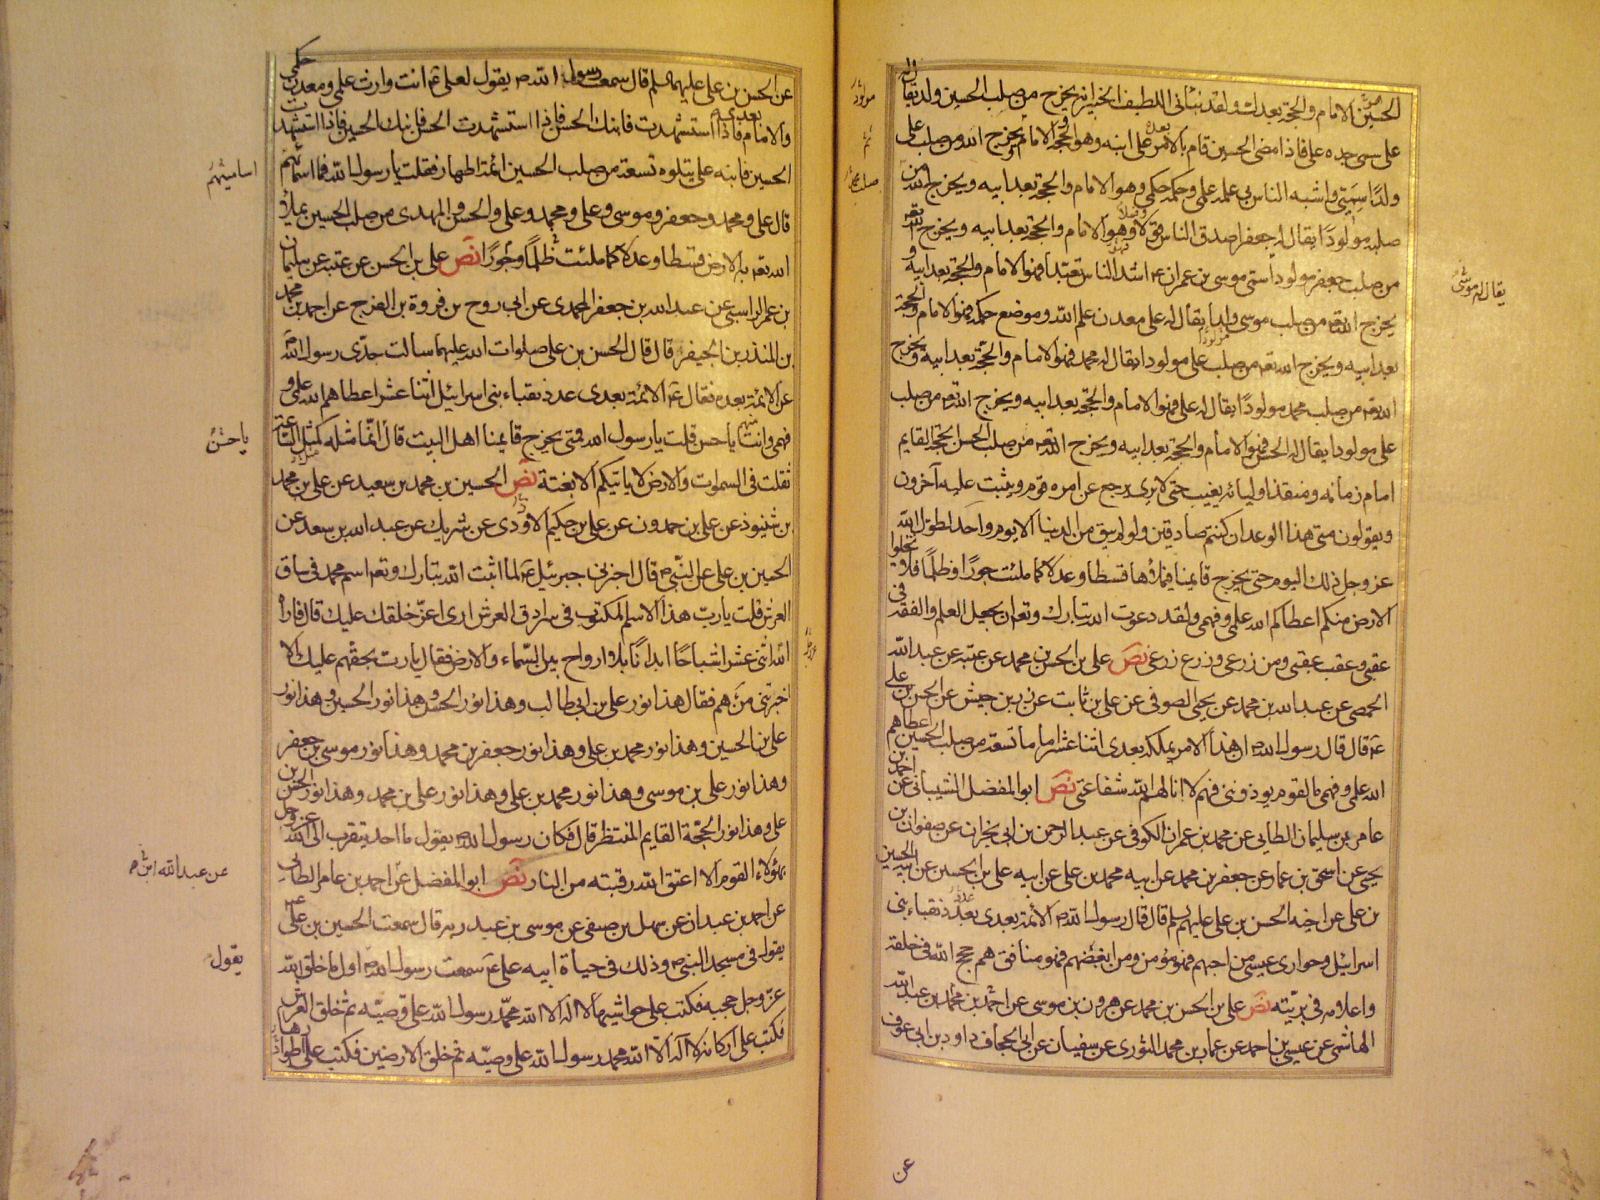 الحسين الامام والحجة بعدك ولقد نبأني اللطيف الخبير انه يخرج من صلب الحسين ولد يقال له
على سمي جده علي فاذا مضى الحسين قام بالامر بعده علي ابنه وهو الحجة والامام ويخرج الله من صلب علي
ولدا سميي واشبه الناس بي علمه علمي وحكمه حكمي وهو الامام والحجة بعد ابيه ويخرج الله من
صلبه مولودا يقال له جعفر اصدق الناس قولا وفعلا وهو الامام والحجة بعد ابيه ويخرج الله تعم
من صلب جعفر مولودا سمي موسى بن عمران ع اشد الناس تعبدا فهو الامام والحجة بعد ابيه و
يخرج الله تعم من صلب موسى ولدا يقال له علي معدن علم الله وموضع حكمه فهو الامام والحجة
بعد ابيه ويخرج الله تعم من صلب علي مولودا يقال له محمد فهو الامام والحجة بعد ابيه ويخرج
الله تعم من صلب محمد مولودا يقال له علي فهو الامام والحجة بعد ابيه ويخرج الله تعم من صلب
علي مولودا يقال له الحسن فهو الامام والحجة بعد ابيه ويخرج الله تعم من صلب الحسن الحجة القايم
امام زمانه ومنقذ اوليائه يغيب حتى لا يرى يرجع عن امره قوم ويثبت عليه آخرون
ويقولون متى هذا الوعد ان كنتم صادقين ولو لم يبق من الدنيا الا يوم واحد لطول الله
عز وجل ذلك اليوم حتى يخرج قايمنا فيملأها قسطا وعدلا كما ملئت جورا وظلما فلا تخلوا
الارض منكم اعطاكم الله علمي وفهمي ولقد دعوت الله تبارك وتعم ان يجعل العلم والفقه في
عقبي وعقب عقبي ومن زرعي وزرع زرعي نص علي بن الحسن بن محمد عن عتبه عن عبد الله
الحمصي عن عبد الله بن محمد عن يحيى الصوفي عن علي بن ثابت عن زر بن حبيش عن الحسن بن علي
ع قال قال رسول الله ص ان هذا الامر يملكه بعدي اثنا عشر اماما تسعة من صلب الحسين اعطاهم
الله علمي وفهمي ما لقوم يوذونني فيهم لا انالهم الله شفاعتي نص ابو المفضل الشيباني عن احمد بن
عامر بن سليمان الطايي عن محمد بن عمران الكوفي عن عبد الرحمن بن ابي نجران عن صفوان بن
يحيى عن اسحق بن عمار عن جعفر بن محمد عن ابيه محمد بن علي عن ابيه علي بن الحسين عن ابيه الحسين
بن علي عن اخيه الحسن بن علي عليهم السلم قال قال رسول الله ص الائمة بعدي بعدد نقباء بني
اسرائيل وحواري عيسى من احبهم فهو مؤمن ومن ابغضهم فهو منافق هم حجج الله في خلقه
واعلامه في بريته نص علي بن الحسن بن محمد عن هرون بن موسى عن احمد بن محمد بن عبد الله
الهاشمي عن عيسى بن احمد عن عمار بن محمد الثوري عن سفيان عن ابي الجحاف داود بن ابي عوف
يقال له موسى
عن
عن الحسن بن علي عليهما السلم قال سمعت رسول الله ص يقول لعلي ع انت وارث علمي ومعدن حكمي
والامام بعدي فاذا استشهدت فابنك الحسن فاذا استشهدت الحسن فابنك الحسين فاذا استشهد
الحسين فابنه علي يتلوه تسعة من صلب الحسين ائمة اطهار فقلت يا رسول الله فما اسمائهم
قال علي ومحمد وجعفر وموسى وعلي ومحمد وعلي والحسن والمهدي من صلب الحسين يملأ
الله تعم به الارض قسطا وعدلا كما ملئت ظلما وجورا نص علي بن الحسن عن عتبه عن سليمان
بن عمر الراسبي عن عبد الله بن جعفر المحمدي عن ابي روح بن فروة بن الفرج عن احمد بن محمد
بن المنذر بن الجيفر قال قال الحسن بن علي صلوات الله عليهما سالت جدي رسول الله
عن الائمة بعده فقال ع الائمة بعدي عدد نقباء بني اسرائيل اثنا عشر اعطاهم الله علمي و
فهمي وانت منهم يا حسن قلت يا رسول الله فمتى يخرج قايمنا اهل البيت قال انما مثله كمثل الساعة
ثقلت في السموات والارض لا ياتيكم الا بغتة نص الحسين بن محمد بن سعيد عن علي بن محمد
بن شنبوذ عن علي بن حمدون عن علي بن حكيم الاودي عن شريك عن عبد الله بن سعد عن
الحسين بن علي عن النبي ص قال اخبرني جبرئيل ع لما اثبت الله تبارك وتعم اسم محمد في ساق
العرش قلت يا رب هذا الاسم المكتوب في سرادق العرش ارى اعز خلقك عليك قال فاراه
الله اثني عشر اشباحا ابدانا بلا ارواح بين السماء والارض فقال يا رب بحقهم عليك الا
اخبرتني من هم فقال هذا نور علي بن ابي طالب وهذا نور الحسن وهذا نور الحسين وهذا نور
علي بن الحسين وهذا نور محمد بن علي وهذا نور جعفر بن محمد وهذا نور موسى بن جعفر
وهذا نور علي بن موسى وهذا نور محمد بن علي وهذا نور علي بن محمد وهذا نور الحسن بن
علي وهذا نور الحجة القايم المنتظر قال فكان رسول الله ص يقول ما احد يتقرب الى الله عز وجل
بهؤلاء القوم الا اعتق الله رقبته من النار نص ابو المفضل عن احمد بن عامر الطائي
عن احمد بن عبدان عن سهل بن صيفي عن موسى بن عبد ربه قال سمعت الحسين بن علي ع
يقول في مسجد النبي ص وذلك في حياة ابيه علي ع سمعت رسول الله ص اول ما خلق الله
عز وجل حجبه فكتب على حواشيها لا اله الا الله محمد رسول الله علي وصيه ثم خلق العرش
فكتب على اركانه لا اله الا الله محمد رسول الله علي وصيه ثم خلق الارضين فكتب على اطوارها
اساميهم
يا حسن
يقول